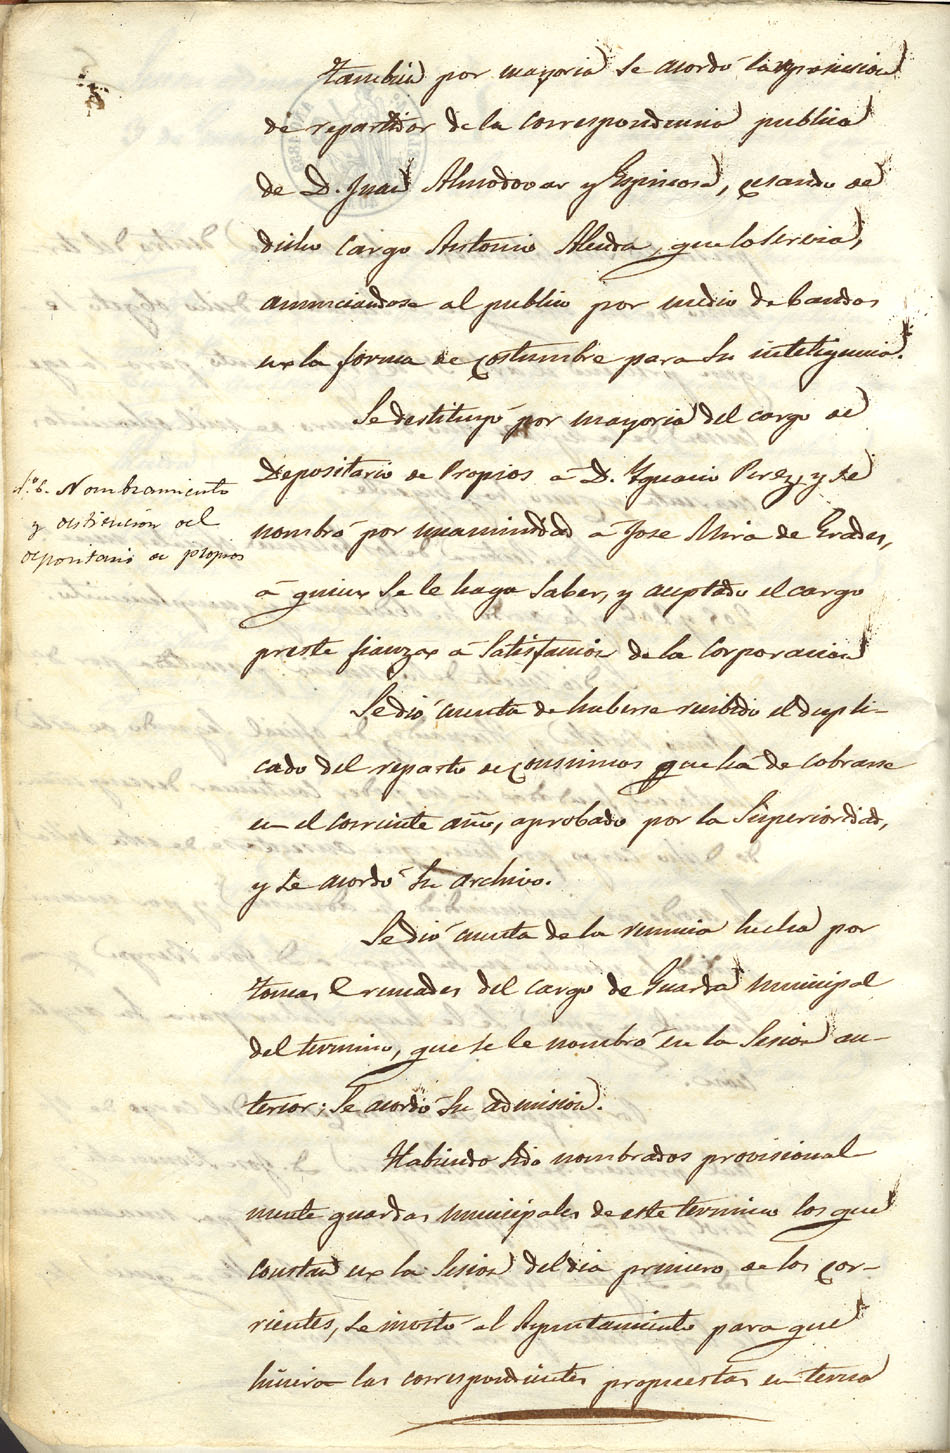 Tambien por mayoria se acordó la reposicion
de repartidor de la correspondencia publica
de D. Juan Almodovar y Espinosa, cesando de
dicho cargo Antonio Alenda, que lo servia,
anunciandose al publico por medio de bandos
en la forma de costumbre para su inteligencia.
Se destituyó por mayoria del cargo de
Depositario de Propios á D. Ygnacio Perez, y se
nombró por unanimidad á Jose Mira de Grades,
á quien se le haga saber, y aceptado el cargo
preste fianza á satisfacion de la Corporacion
Nombramiento
y destitucion del
depositario de propios
Se dió cuenta de haberse recibido el dupli-
cado del reparto de consumos que ha de cobrarse
en el corriente año, aprobado por la Superioridad,
y se acordó su archivo.
Se dió cuenta de la renuncia hecha por
Tomas Cremades del cargo de Guarda municipal
del termino, que se le nombró en la Sesion an-
terior; se acordó su admision.
Habiendo sido nombrados provisional-
mente guardas municipales de este termino los que
constan en la Sesion del dia primero de los cor-
rientes, se invitó al Ayuntamiento para que
hiciera las correspondientes propuestas en terna